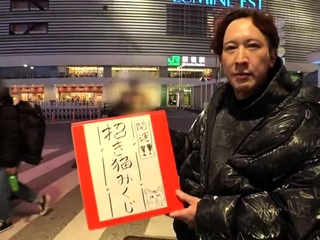 LUMINE EST
JR 新宿駅
開運
招き猫みくじ